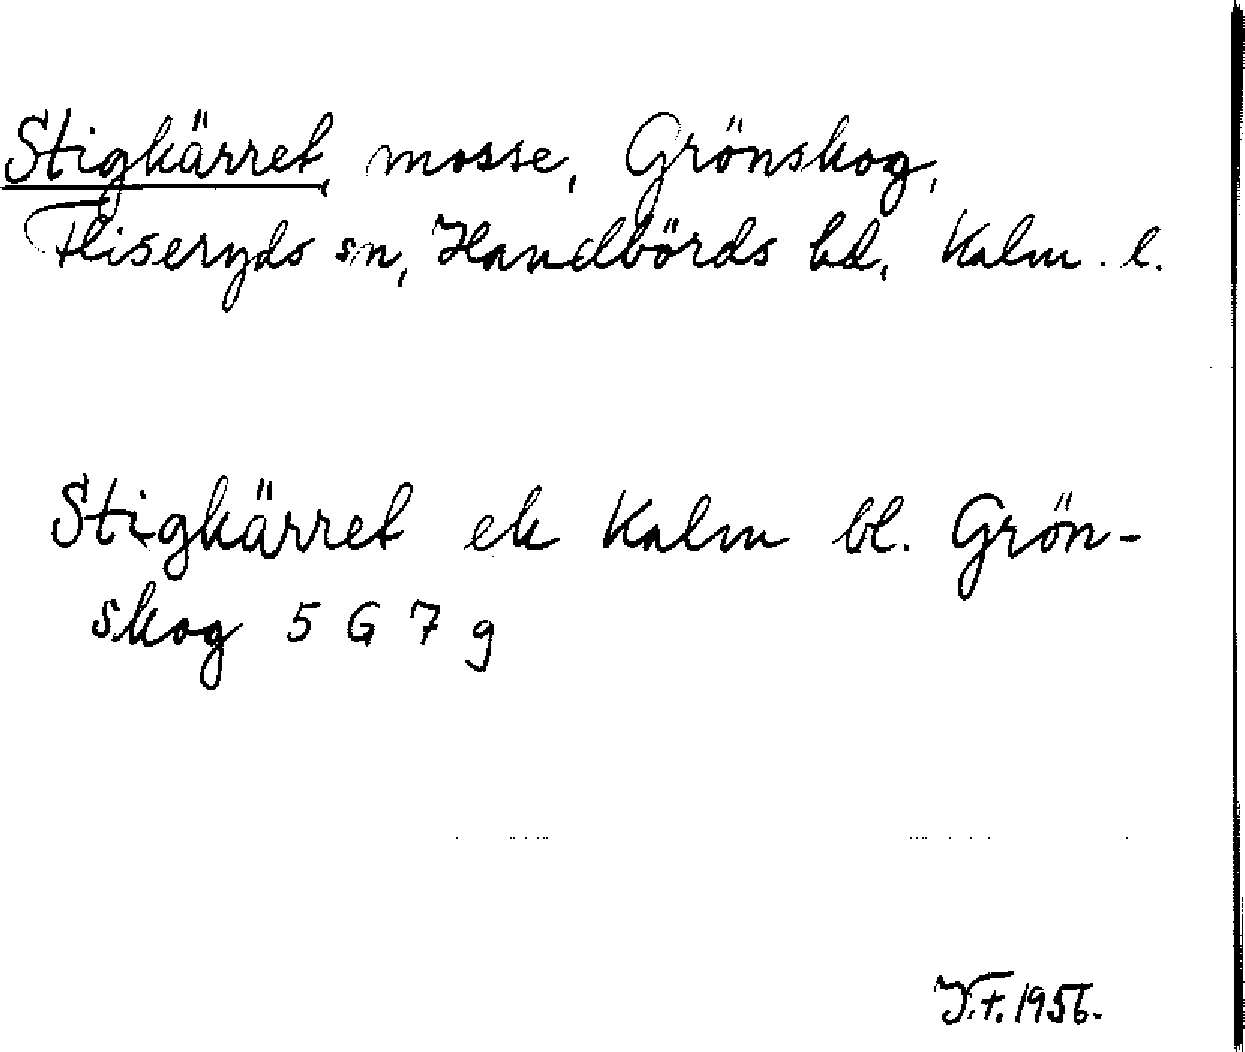 Stigkärret, mosse, Grönskog,
Fliseryds sn, Handbörds hd, Kalm. l.
Stigkärret ek Kalm bl. Grön-
skog 5 G 7 g
J.F. 1956.